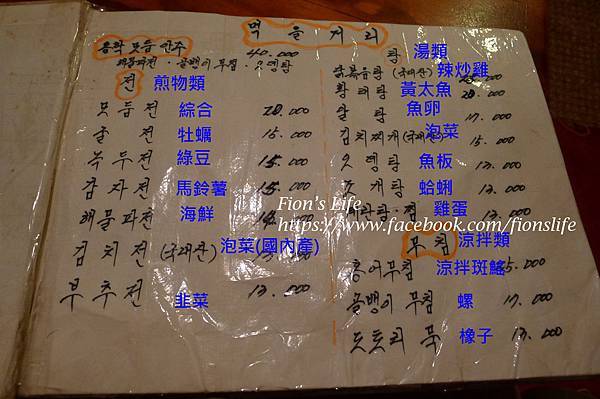 먹을거리
음학 모듬 안주 40.000
해물파전 · 골뱅이무침 · 오뎅탕
전 煎物類
모듬전 綜合 20.000
굴전 牡蠣 15.000
녹두전 綠豆 15.000
감자전 馬鈴薯 15.000
해물파전 海鮮
김치전 (국내산) 泡菜(國內產)
부추전 韭菜 13.000
탕 湯類
닭볶음탕 (국내산) 辣炒雞
황태탕 黃太魚 20.000
알탕 魚卵 17.000
김치찌개 (국내산) 泡菜 15.000
오뎅탕 魚板 13.000
조개탕 蛤蜊 13.000
계란탕·찜 雞蛋 13.000
무침 涼拌類
홍어무침 涼拌斑鰩
골뱅이무침 螺 17.000
도토리묵 橡子 13.000
Fion's Life
https://www.facebook.com/fionslife